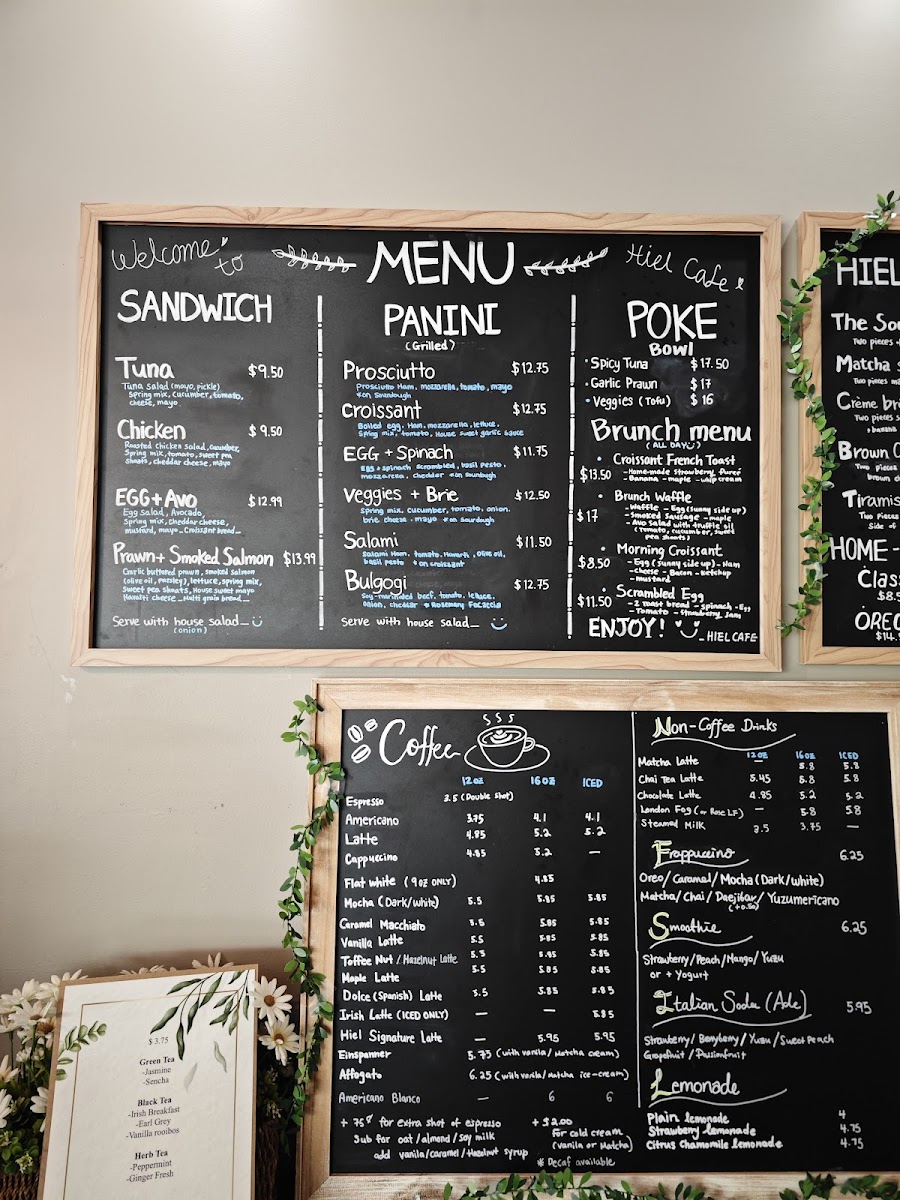 Welcome to
MENU
Hiel Cafe
SANDWICH
Tuna $9.50
Tuna salad (mayo, pickle)
Spring mix, cucumber, tomato,
cheese, mayo
Chicken $9.50
Roasted chicken salad, cucumber,
Spring mix, tomato, sweet pea
shoots, cheddar cheese, mayo
EGG + Avo $12.99
Egg Salad, Avocado,
Spring mix, cheddar cheese,
mustard, mayo - Croissant bread -
Prawn + Smoked Salmon $13.99
Garlic buttered prawn, smoked salmon
(olive oil, parsley), lettuce, spring mix,
Sweet pea shoots, House sweet mayo
Havarti cheese - Multi grain bread -
Serve with house salad_
(onion)
PANINI
(Grilled)
Prosciutto $12.75
Prosciutto Ham, mozzarella, tomato, mayo
* on Sourdough
Croissant $12.75
Boiled egg, Ham, mozzarella, lettuce,
Spring mix, tomato, House sweet garlic sauce
EGG + Spinach $11.75
Egg + spinach scrambled, basil pesto,
mozzarella, cheddar * on sourdough
Veggies + Brie $12.50
Spring mix, cucumber, tomato, onion,
brie cheese, mayo * on sourdough
Salami $11.50
Salami Ham, tomato, Havarti, olive oil,
basil pesto * on croissant
Bulgogi $12.75
Soy-marinated beef, tomato, lettuce,
Onion, cheddar * Rosemary Focaccia
Serve with house salad_
POKE
Bowl
• Spicy Tuna $17.50
• Garlic Prawn $17
• Veggies (Tofu) $16
Brunch menu
(ALL DAY)
• Croissant French Toast
$13.50 - Homemade strawberry puree
- Banana - maple - whip cream
• Brunch Waffle
$17 - Waffle - Egg (sunny side up)
- Smoked sausage - maple
- Avo salad with truffle oil
(Tomato, cucumber, sweet
pea shoots)
• Morning Croissant
$8.50 - Egg (sunny side up) - Ham
- Cheese - Bacon - ketchup
- mustard
• Scrambled Egg
$11.50 - 2 roast bread - spinach - Egg
- Tomato - strawberry Jam
ENJOY! _ HIEL CAFE
HIEL
The Sou
Two pieces
Matcha
Two pieces
Crème br
Two pieces
+ banana
Brown
Two pieces
brown
Tiramis
Two Pieces
Side of
HOME -
Class
$8.5
OREO
$14.
Coffee
12oz 16oz ICED
Espresso 3.5 (Double Shot)
Americano 3.75 4.1 4.1
Latte 4.85 5.2 5.2
Cappuccino 4.85 5.2 —
Flat white (9oz ONLY) 4.85
Mocha (Dark/white) 5.5 5.85 5.85
Caramel Macchiato 5.5 5.85 5.85
Vanilla Latte 5.5 5.85 5.85
Toffee Nut / Hazelnut Latte 5.5 5.85 5.85
Maple Latte 5.5 5.85 5.85
Dolce (Spanish) Latte 5.5 5.85 5.85
Irish Latte (ICED ONLY) — — 5.85
Hiel Signature Latte — 5.95 5.95
Einspanner 5.75 (with vanila / Matcha cream)
Affogato 6.25 (with vanila / Matcha ice-cream)
Americano Blanco — 6 6
+ 75¢ for extra shot of espresso
Sub for oat / almond / soy milk
add vanila/caramel/Hazelnut syrup
+ $2.00
for cold cream
(vanila or Matcha)
* Decaf available
Non-Coffee Drinks
12oz 16oz ICED
Matcha Latte — 5.8 5.8
Chai Tea Latte 5.45 5.8 5.8
Chocolate Latte 4.85 5.2 5.2
London Fog (or Rose L.F) — 5.8 5.8
Steamed Milk 3.5 3.75 —
Frappuccino 6.25
Oreo / Caramel / Mocha (Dark/white)
Matcha / Chai / Daejibar / Yuzumericano
(+0.50)
Smoothie 6.25
Strawberry/Peach/Mango/Yuzu
or + Yogurt
Italian Soda (Ade) 5.95
Strawberry / Berryberry / Yuzu / Sweet Peach
Grapefruit / Passionfruit
Lemonade
Plain lemonade 4
Strawberry lemonade 4.75
Citrus Chamomile lemonade 4.75
$ 3.75
Green Tea
-Jasmine
-Sencha
Black Tea
-Irish Breakfast
-Earl Grey
-Vanilla rooibos
Herb Tea
-Peppermint
-Ginger Fresh